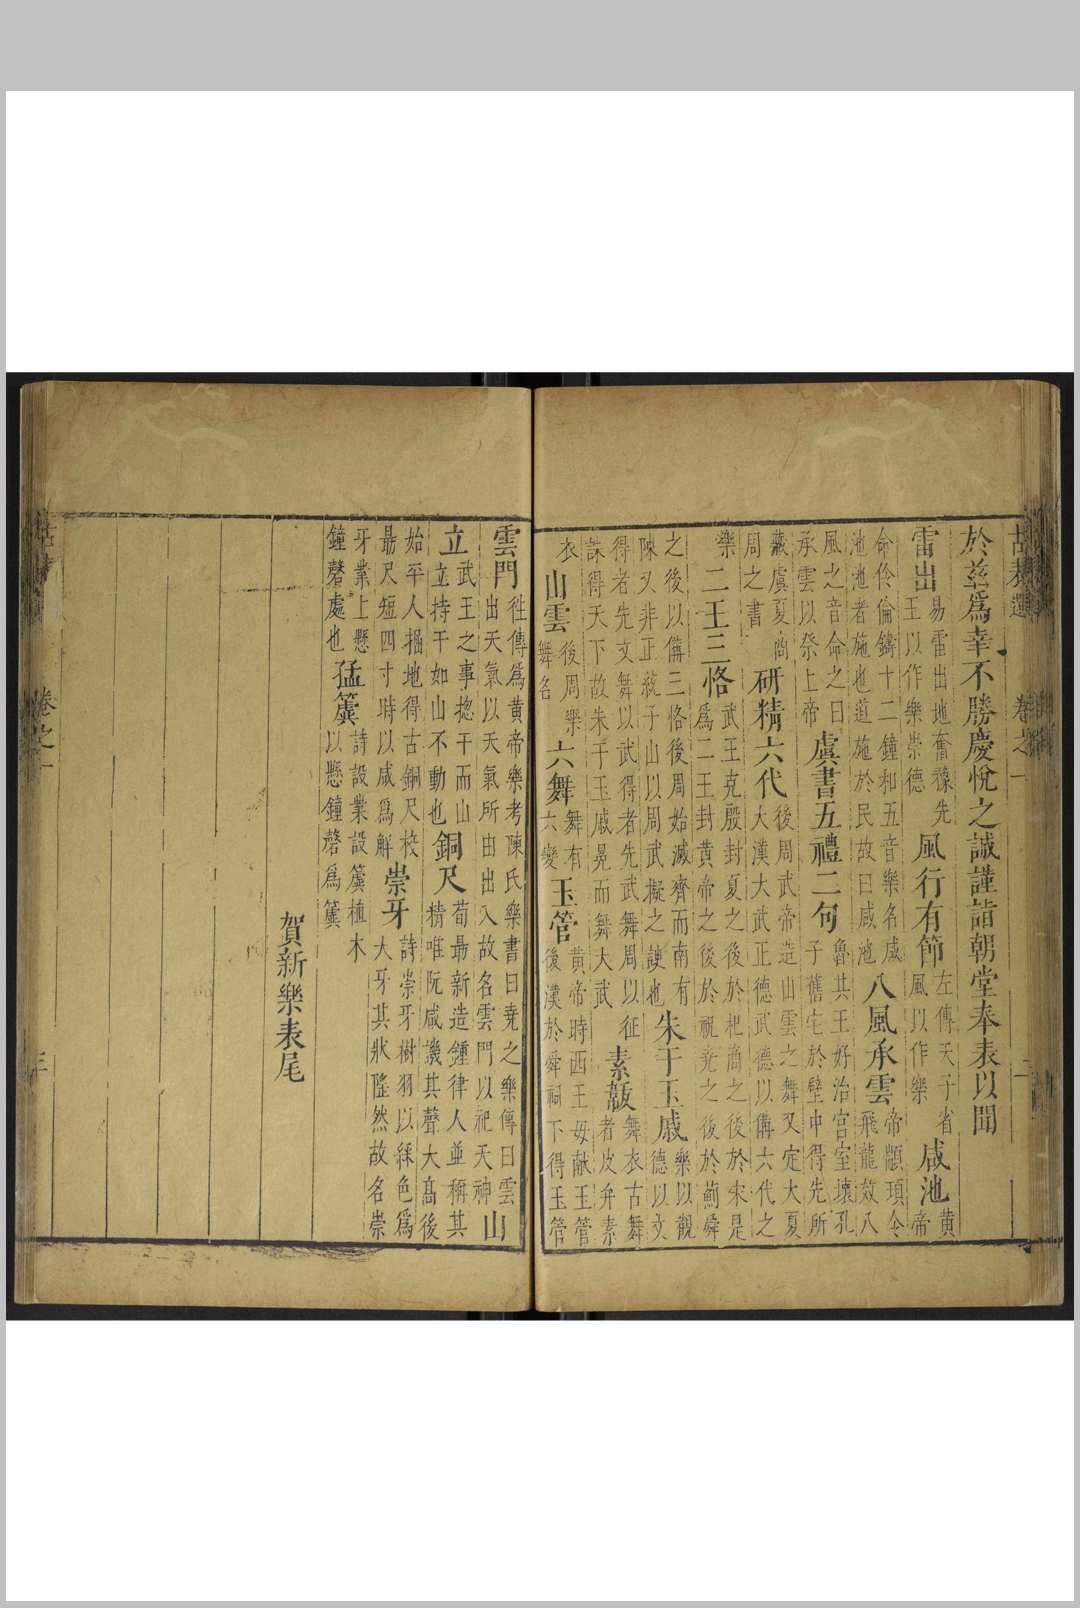 古表選 卷之一 二
於茲爲幸不勝慶悅之誠謹詣朝堂奉表以聞
雷出易雷出地奮豫先王以作樂崇德風行有節左傳天子省風以作樂咸池黃帝
命伶倫鑄十二鐘和五音樂名咸池池者施也道施於民故曰咸池八風承雲帝顓頊令飛龍效八
風之音命之曰承雲以祭上帝虞書五禮二句魯共王好治宮室壞孔子舊宅於壁中得先所
藏虞夏商周之書研精六代後周武帝造山雲之舞又定大夏大濩大武正德武德以備六代之
樂二王三恪武王克殷封夏之後於杞商之後於宋是爲二王封黃帝之後於祝堯之後於薊舜
之後以備三恪後周始滅齊而南有陳又非正統子山以周武擬之諛也朱干玉戚樂以觀德以文
得者先文舞以武得者先武舞周以征誅得天下故朱干玉戚冕而舞大武素韍舞衣古舞者皮弁素
衣山雲後周樂舞名六舞舞有六變玉管黃帝時西王母献王管後漢於舜祠下得玉管
雲門徃傳爲黃帝樂考陳氏樂書曰堯之樂傳曰雲出天氣以天氣所由出入故名雲門以祀天神山
立武王之事揔干而山立立持干如山不動也銅尺荀朂新造鍾律人並稱其精唯阮咸譏其聲大高後
始平人掘地得古銅尺校朂尺短四寸時以咸爲解崇牙詩崇牙樹羽以綵色爲大牙其狀隆然故名崇
牙業上懸鐘磬處也猛簴詩設業設簴植木以懸鐘磬爲簴
賀新樂表尾
卷之一 三